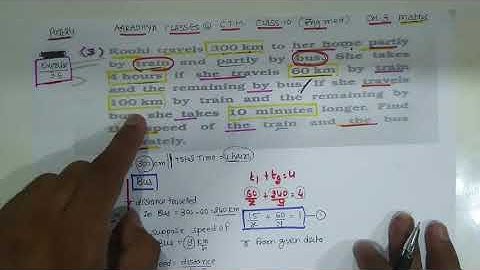 AARADHYA CLASSES @ C.T.M. CLASS-10 (Eng. med) CH-3 Maths
Sunita
(3) Roohi travels 300 km to her home partly
by train and partly by bus. She takes
4 hours if she travels 60 km by train
and the remaining by bus. If she travels
100 km by train and the remaining by
bus she takes 10 minutes longer. Find
speed of the train and the bus
300 km Time = 4 hours
t₁ + t₂ = 4
Bus
60/x + 240/y = 4
distance traveled
in Bus = 300-60 = 240 km
15/x + 60/y = 1 ①
suppose speed of
Bus = (y) km/h
from given data
= distance